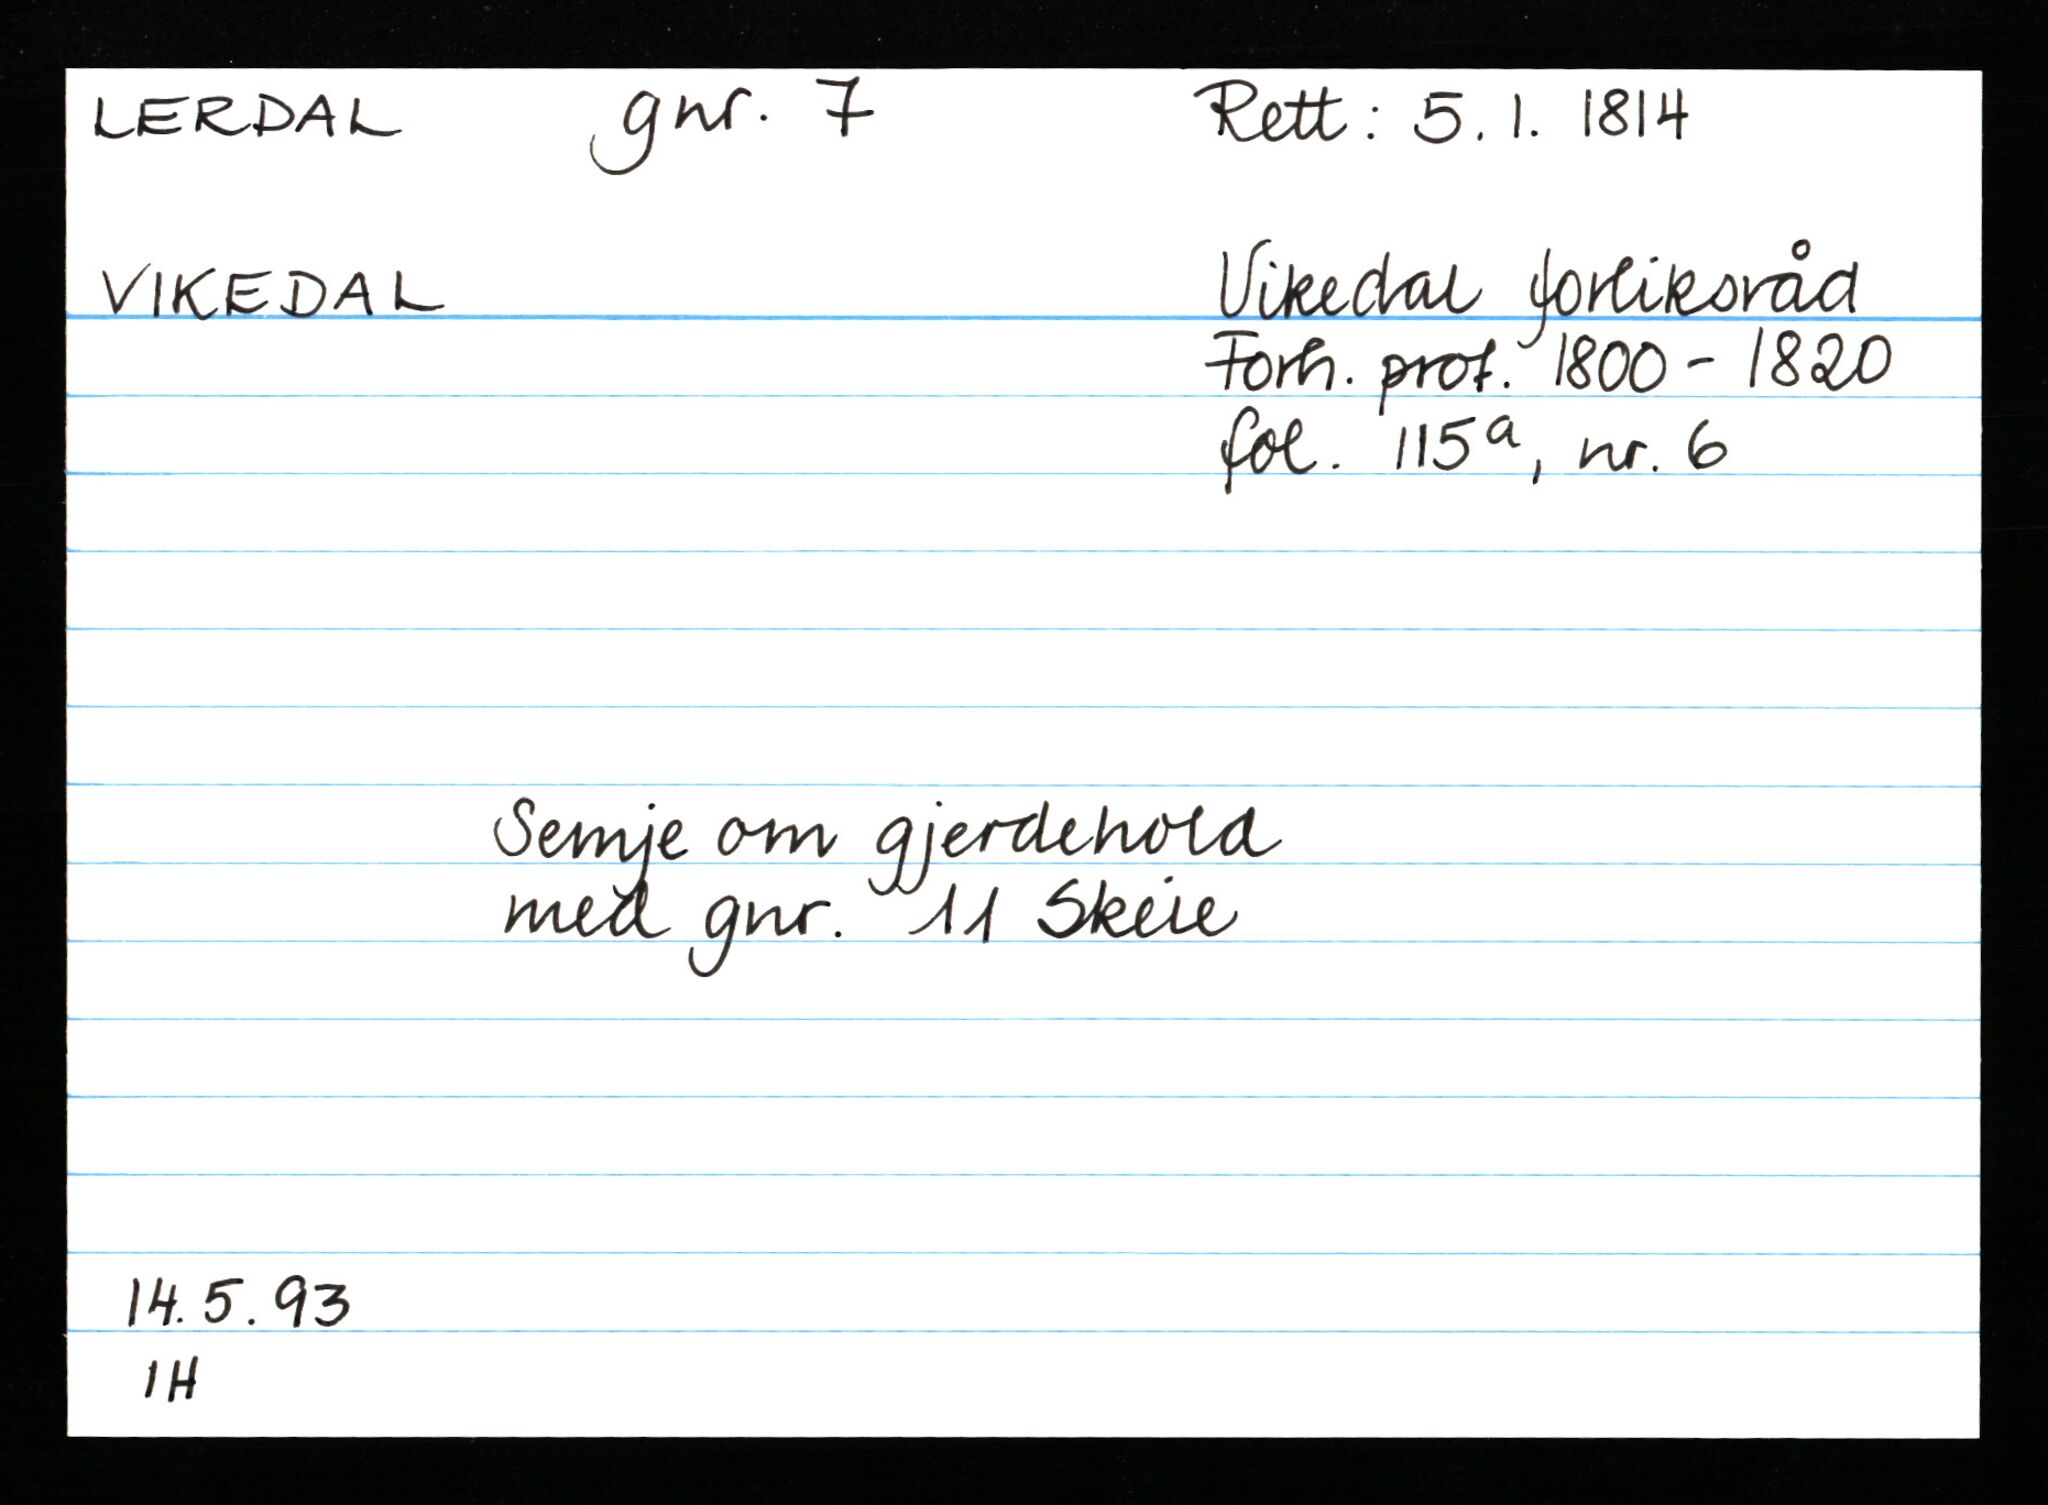 LERDAL gnr. 7 Rett: 5.1. 1814
VIKEDAL Vikedal forliksråd
Forh. prot. 1800-1820
fol. 115a, nr. 6
Semje om gjerdehold
med gnr. 11 Skeie
14.5.93
IH